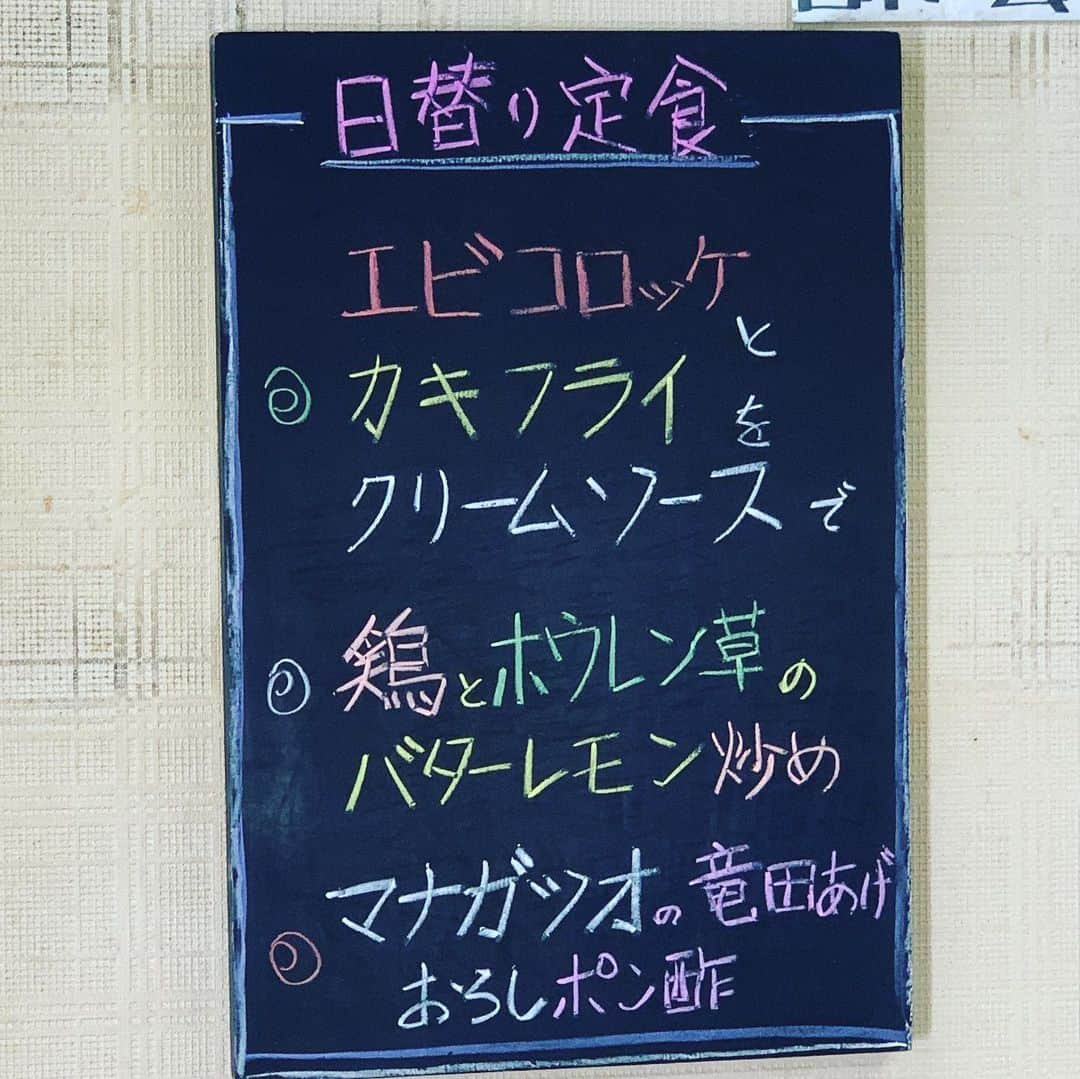 日替り定食
エビコロッケと
カキフライを
クリームソースで
鶏とホウレン草の
バターレモン炒め
マナガツオの竜田あげ
おろしポン酢